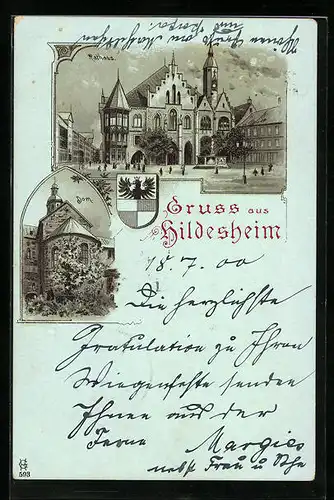 Rathaus.
Dom.
Gruss aus
Hildesheim
18.7.00
Die herzlichste
Gratulation zu Ihren
Wiegenfeste senden
Ihnen aus der
Ferne Margies
nebst Frau u
593